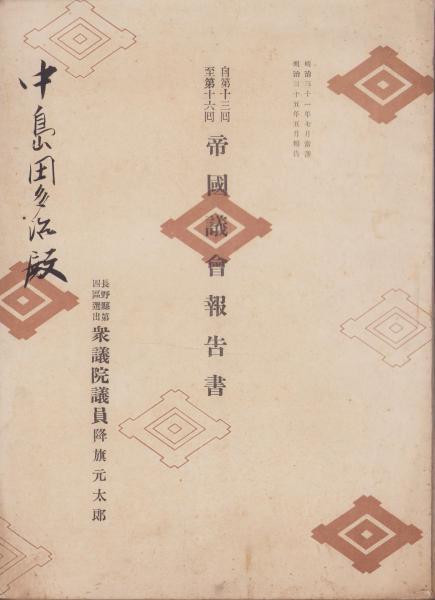 明治三十一年七月當選
明治三十五年五月報告
自第十三囘
至第十六囘
帝國議會報告書
長野縣第
四區選出
衆議院議員降旗元太郎
中島田多治殿